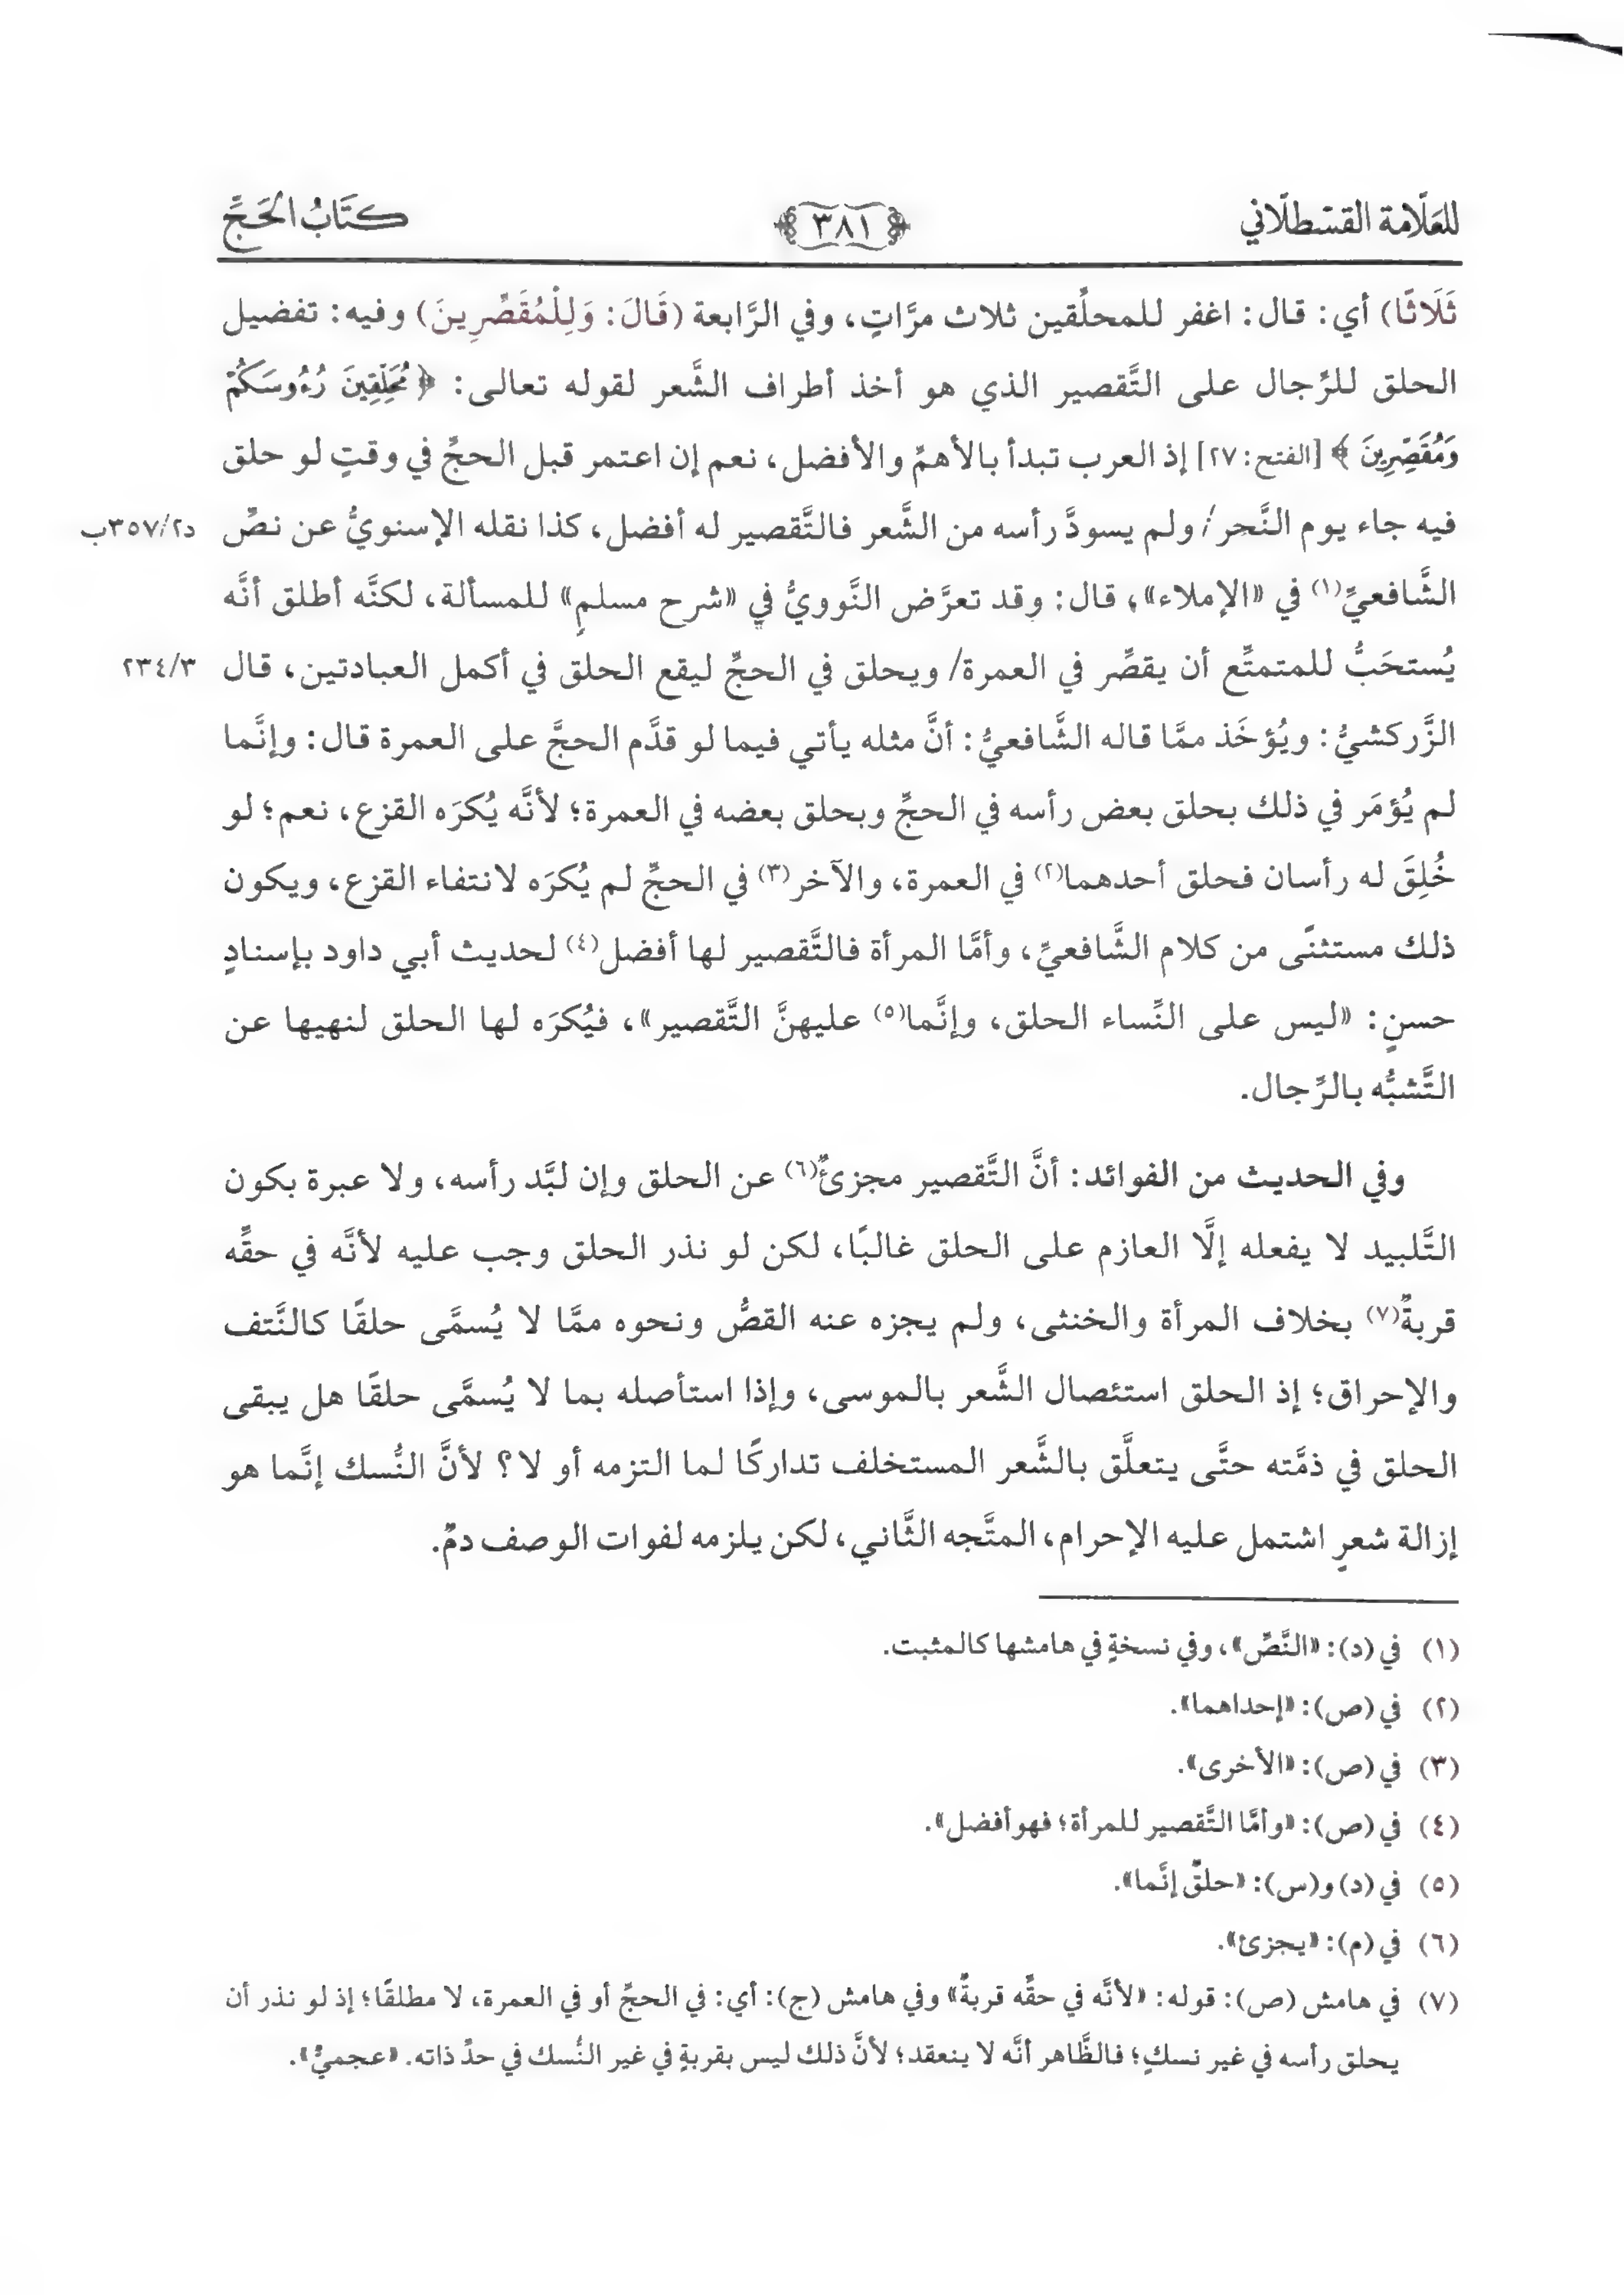 للعلّامة القسطلّاني ٣٨١ كتَابُ الحَجِّ
ثَلَاثًا) أي: قال: اغفر للمحلِّقين ثلاث مرَّاتٍ، وفي الرَّابعة (قَالَ: وَلِلْمُقَصِّرِينَ) وفيه: تفضيل
الحلق للرِّجال على التَّقصير الذي هو أخذ أطراف الشَّعر لقوله تعالى: ﴿مُحَلِّقِينَ رُءُوسَكُمْ
وَمُقَصِّرِينَ﴾ [الفتح: ٢٧] إذ العرب تبدأ بالأهمِّ والأفضل، نعم إن اعتمر قبل الحجِّ في وقتٍ لو حلق
فيه جاء يوم النَّحر/ ولم يسودَّ رأسه من الشَّعر فالتَّقصير له أفضل، كذا نقله الإسنويُّ عن نصِّ د٣٥٧/٢ب
الشَّافعيِّ(١) في «الإملاء»، قال: وقد تعرَّض النَّوويُّ في «شرح مسلمٍ» للمسألة، لكنَّه أطلق أنَّه
يُستحَبُّ للمتمتِّع أن يقصِّر في العمرة/ ويحلق في الحجِّ ليقع الحلق في أكمل العبادتين، قال ٢٣٤/٣
الزَّركشيُّ: ويُؤخَذ ممَّا قاله الشَّافعيُّ: أنَّ مثله يأتي فيما لو قدَّم الحجَّ على العمرة قال: وإنَّما
لم يُؤمَر في ذلك بحلق بعض رأسه في الحجِّ وبحلق بعضه في العمرة؛ لأنَّه يُكرَه القزع، نعم؛ لو
خُلِقَ له رأسان فحلق أحدهما(٢) في العمرة، والآخر(٣) في الحجِّ لم يُكرَه لانتفاء القزع، ويكون
ذلك مستثنًى من كلام الشَّافعيِّ، وأمَّا المرأة فالتَّقصير لها أفضل(٤) لحديث أبي داود بإسنادٍ
حسنٍ: «ليس على النِّساء الحلق، وإنَّما(٥) عليهنَّ التَّقصير»، فيُكرَه لها الحلق لنهيها عن
التَّشبُّه بالرِّجال.
وفي الحديث من الفوائد: أنَّ التَّقصير مجزئٌ(٦) عن الحلق وإن لبَّد رأسه، ولا عبرة بكون
التَّلبيد لا يفعله إلَّا العازم على الحلق غالبًا، لكن لو نذر الحلق وجب عليه لأنَّه في حقِّه
قربةٌ(٧) بخلاف المرأة والخنثى، ولم يجزه عنه القصُّ ونحوه ممَّا لا يُسمَّى حلقًا كالنَّتف
والإحراق؛ إذ الحلق استئصال الشَّعر بالموسى، وإذا استأصله بما لا يُسمَّى حلقًا هل يبقى
الحلق في ذمَّته حتَّى يتعلَّق بالشَّعر المستخلف تداركًا لما التزمه أو لا؟ لأنَّ النُّسك إنَّما هو
إزالة شعرٍ اشتمل عليه الإحرام، المتَّجه الثَّاني، لكن يلزمه لفوات الوصف دمٌ.
(١) في (د): «النَّصِّ»، وفي نسخةٍ في هامشها كالمثبت.
(٢) في (ص): «إحداهما».
(٣) في (ص): «الأخرى».
(٤) في (ص): «وأمَّا التَّقصير للمرأة؛ فهو أفضل».
(٥) في (د) و(س): «حلقٌ إنَّما».
(٦) في (م): «يجزئ».
(٧) في هامش (ص): قوله: «لأنَّه في حقِّه قربةٌ» وفي هامش (ج): أي: في الحجِّ أو في العمرة، لا مطلقًا؛ إذ لو نذر أن
يحلق رأسه في غير نسكٍ؛ فالظَّاهر أنَّه لا ينعقد؛ لأنَّ ذلك ليس بقربةٍ في غير النُّسك في حدِّ ذاته. «عجميٌّ».